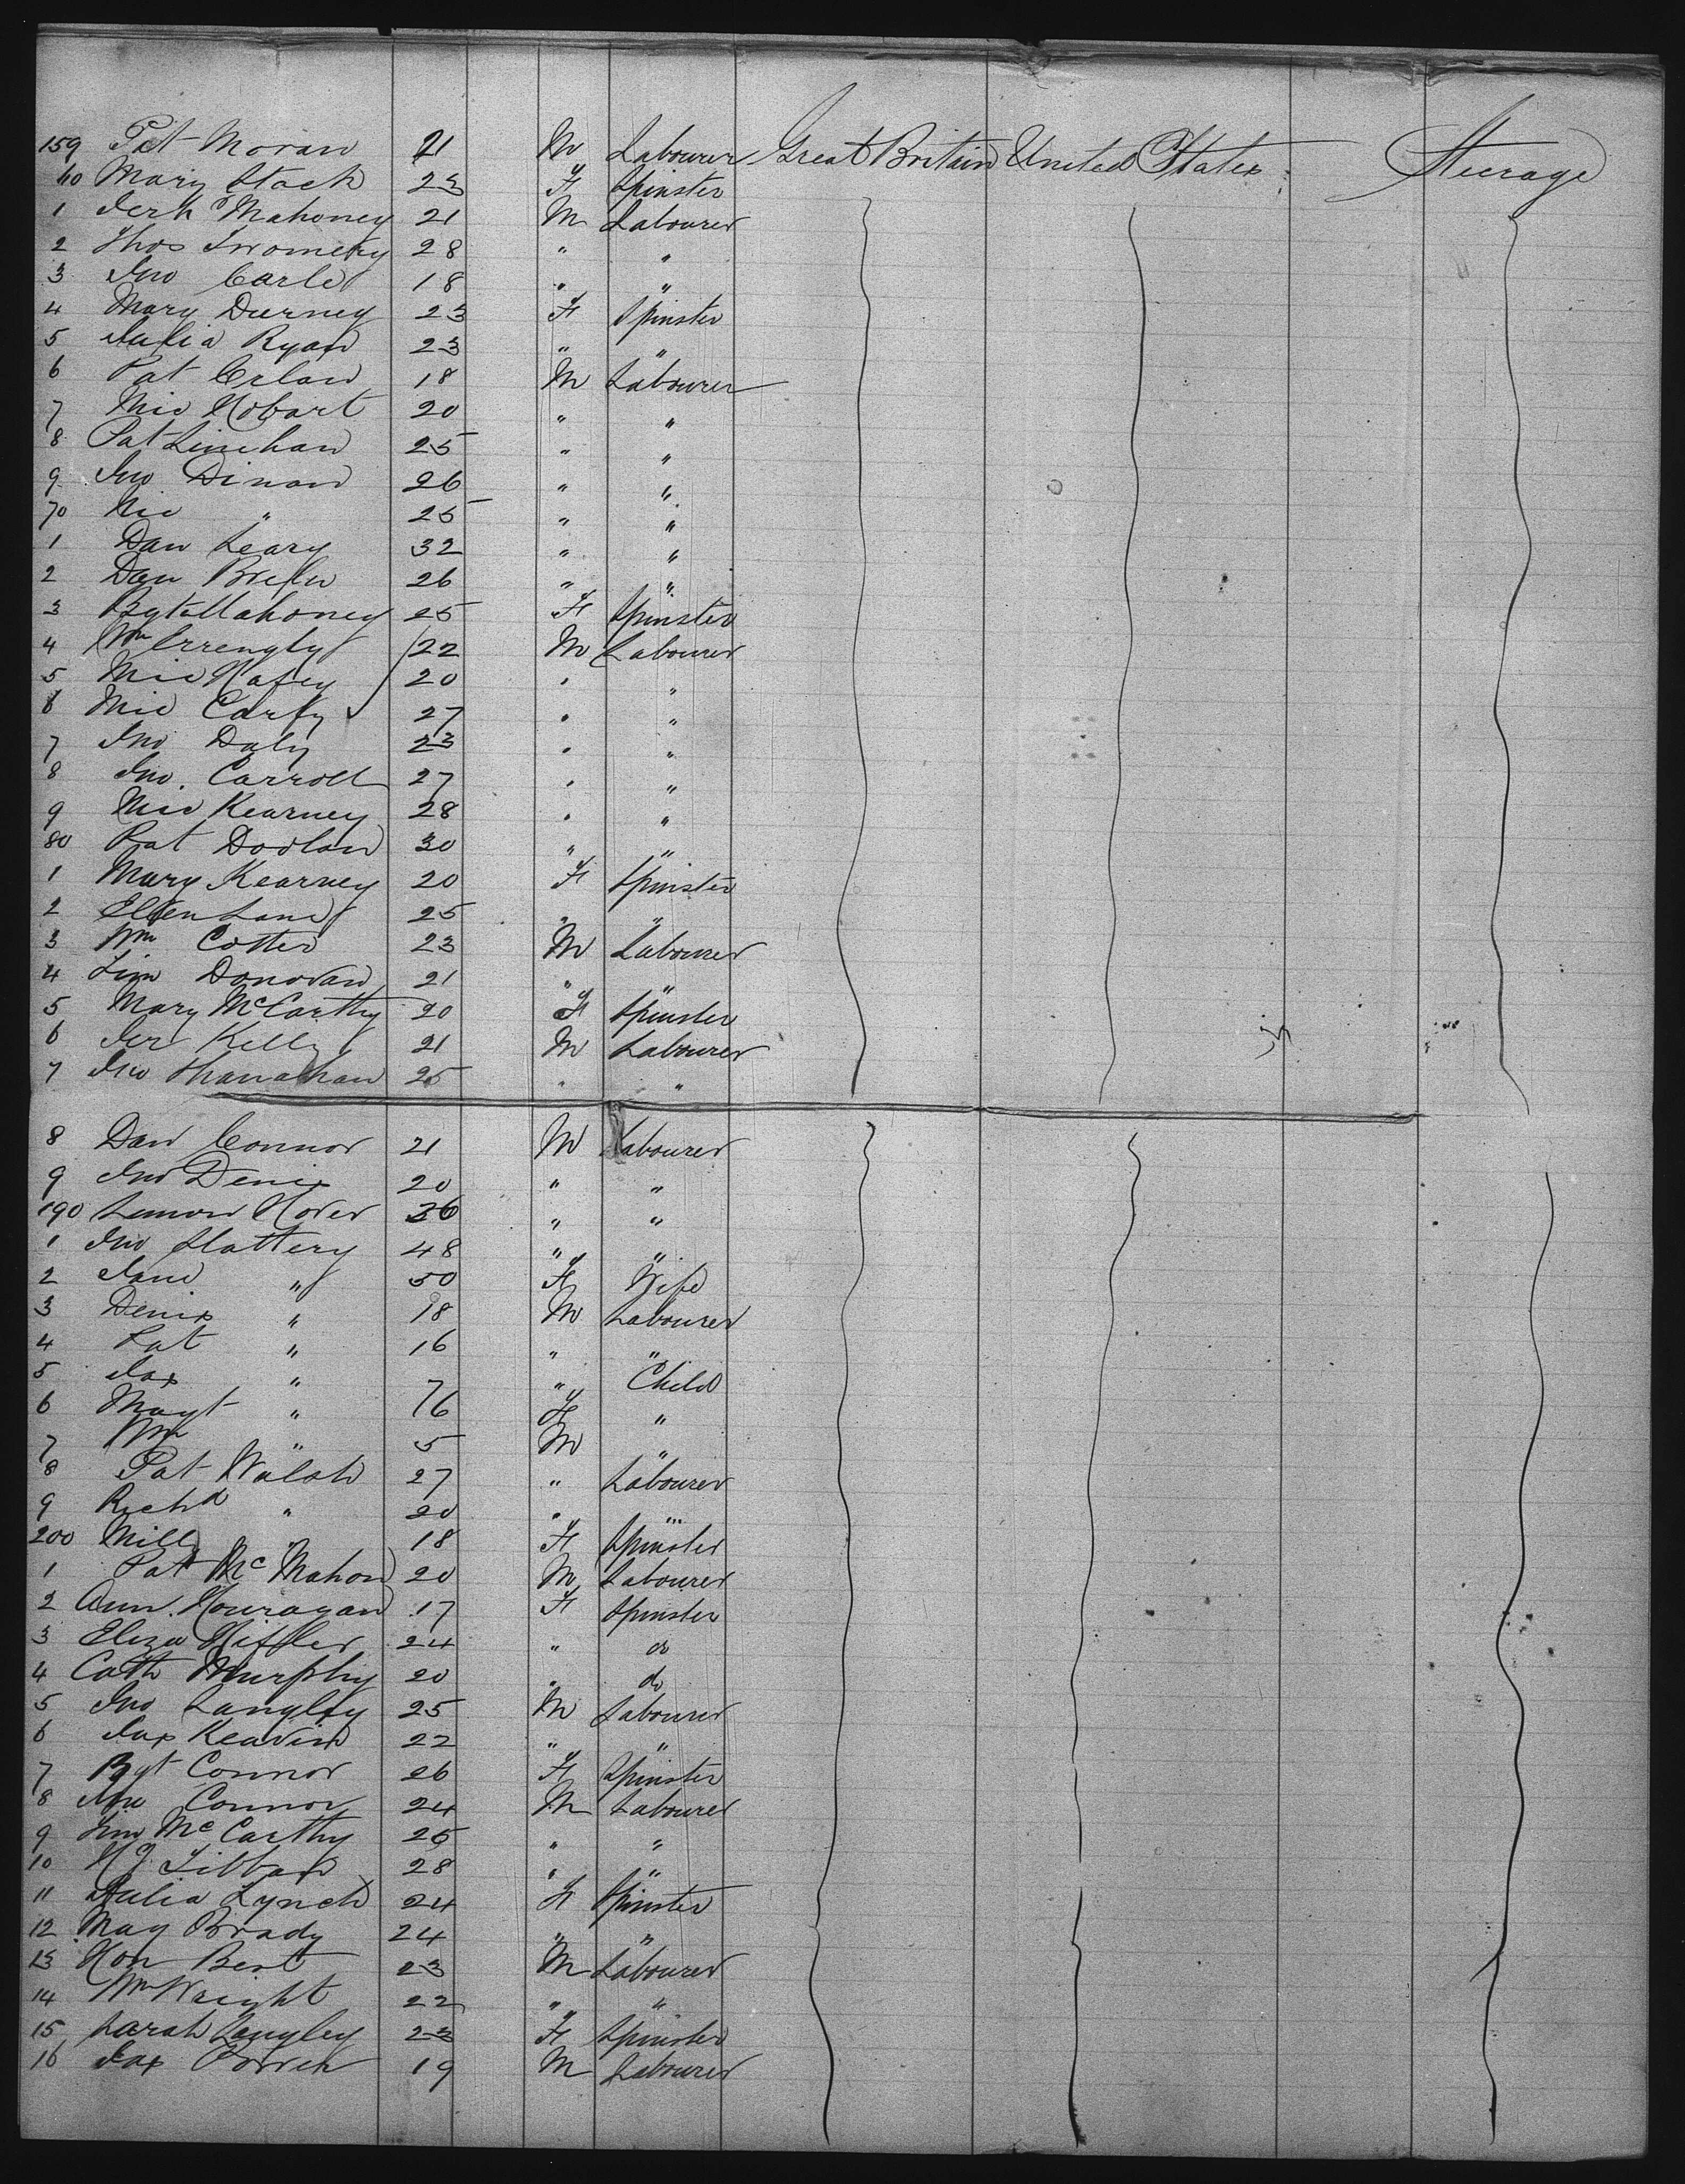 159 Pat Moran 21 M Labourer Great Britain United States Steerage
60 Mary Stack 23 F Spinster
1 Jerh Mahoney 21 M Labourer
2 Thos Twomey 28 " "
3 Jno 18 " "
4 Mary Durney 23 F Spinster
5 Julia Ryan 23 " "
6 Pat 18 M Labourer
7 Mic Hobart 20 " "
8 Pat Linehan 25 " "
9 Jno Dinan 26 " "
70 Mic " 25 " "
1 Dan Leary 32 " "
2 Dan 26 " "
3 Bgt Mahoney 25 F Spinster
4 Wm 22 M Labourer
5 Mic 20 " "
6 Mic 27 " "
7 Jno Daly 23 " "
8 Jno. Carroll 27 " "
9 Mic Kearney 28 " "
80 Pat Doolan 30 " "
1 Mary Kearney 20 F Spinster
2 Ellen Lane 25 " "
3 Wm Cotter 23 M Labourer
4 Tim Donovan 21 " "
5 Mary McCarthy 20 F Spinster
6 Jer Kelly 21 M Labourer
7 Jno Shanahan 25 " "
8 Dan Connor 21 M Labourer
9 Jno Denis 20 " "
190 36 " "
1 Jno Slattery 48 " "
2 Jane " 50 F Wife
3 Denis " 18 M Labourer
4 Pat " 16 " "
5 Jas " 7 " Child
6 Magt " 6 F "
7 Wm " 5 M "
8 Pat Walsh 27 " Labourer
9 Richd " 20 " "
200 18 F Spinster
1 Pat McMahon 20 M Labourer
2 Ann Houragan 17 F Spinster
3 Eliza 24 " do
4 Cath Murphy 20 " do
5 Jno Langley 25 M Labourer
6 Jas 22 " "
7 Bgt Connor 26 F Spinster
8 Jno Connor 24 M Labourer
9 McCarthy 25 " "
10 28 " "
11 Julia Lynch 24 F Spinster
12 Mag Brady 24 " "
13 23 M Labourer
14 Wm Wright 22 " "
15 Sarah Langley 23 F Spinster
16 Jas Power 19 M Labourer